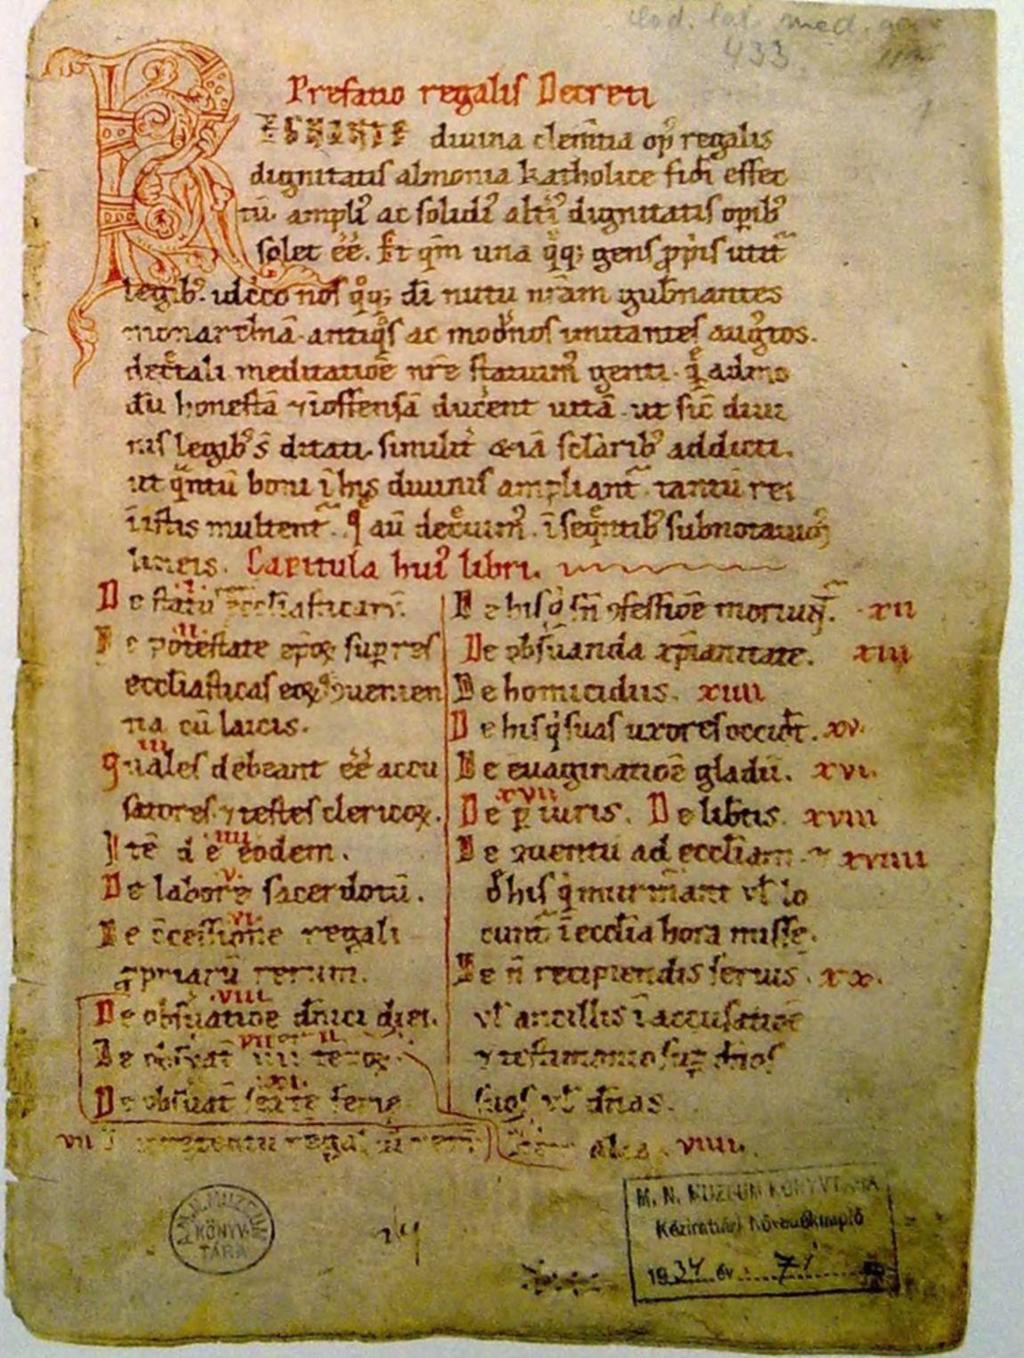 Cod. lat. med. aevi
433.
Prefatio regalis Decreti
REGNANTE divina clem̄tia opꝰ regalis
dignitatis alimonia katholice fidi effec
tū. ampliꝰ ac solidiꝰ altiꝰ dignitatis opibꝰ
solet ēē. Et qm̄ una q̊q; gens ꝓpiis utit᷑
legibꝰ. idcco nos q̊q; dī nutu nr̄am gub̄nantes
monarchiā. antiq̊s ac mod̄nos imitantes augꝰtos.
dec̄tali meditatiōe nr̄e statuimꝰ genti. q̄ admo
dū honestā ⁊ īoffensā ducerent vitā. ut sic̄ divi
nis legibꝰ s̄ ditati. similit̄ &iā sclaribꝰ addicti.
ut q̄ntū boni ī his divinis ampliant᷑ tantū rei
ī istis multent᷑. q̄ aū dec̄vimꝰ. ī seq̄ntibꝰ subnotavimꝰ
lineis. Capitula huiꝰ libri.
De statu ēccl̄iasticarū. I.
De potestate ep̄oꝝ suꝑ res II
eccl̄iasticas eoꝝq; ꝯuenien
tia cū laicis.
Quales debeant ēē accu III
satores ⁊ testes clericoꝝ.
Itē de eodem. IIII
De labore sacerdotū. V.
De c̄cessione regali VI.
ꝓpriarū rerum.
De obs̄uatiōe dn̄ici diei. VIII.
De obs̄uat̄ IIII tēꝑoꝝ
De obs̄uat̄ sexte ferie XI.
VII
De his q̊ sn̄ ꝯfessiōe moriunt᷑. XII
De obs̄uanda xp̄ianitate. XIII
De homicidiis. XIIII
De his q̊ suas uxores occidt̄. XV.
De evaginatiōe gladii. XVI.
De ꝑiuris. XVII De lib̄tis. XVIII
De ꝯuentu ad eccl̄iam. ⁊ XVIIII
d̄ his q̊ murm̄ant vl̄ lo
cunt᷑ ī eccl̄ia hora misse.
De n̄ recipiendis servis. XX.
vl̄ ancillis ī accusatiōe
⁊ testimonio suꝑ dn̄os
suos vl̄ dn̄as.
Item alia. VIIII.
A M. N. MUZEUM
KÖNYV-
TÁRA
M. N. MUZEUM KÖNYVTÁRA
Kézirattári Növedéknapló
1934. év. 71